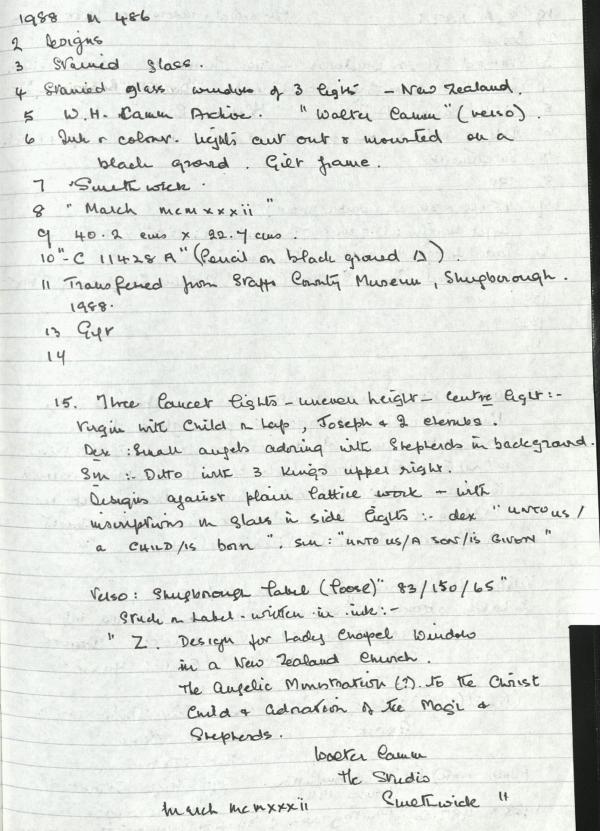 1988 M 486
2 Designs
3 Stained glass.
4 Stained glass window of 3 lights - New Zealand.
5 W.H. Camm Archive. "Walter Camm" (verso).
6 Ink & colour. Lights cut out & mounted on a
black ground. Gilt frame.
7 Smethwick.
8 "March mcmxxxii"
9 40.2 cms x 22.7 cms.
10 "-C 11428 A" (Pencil on black ground).
11 Transferred from Staffs County Museum, Shugborough.
1988.
13 Gift
14
15. Three lancet lights - uneven height - centre light:-
Virgin with Child on lap, Joseph & 2 cherubs.
Dex: Small angels adoring with Shepherds in background.
Sin:- Ditto with 3 Kings upper right.
Designs against plain lattice work - with
inscriptions on glass in side lights:- dex "UNTO US/
a CHILD/IS born". sin: "UNTO US/A SON/IS GIVEN"
Verso: Shugborough label (loose) "83/150/65"
Stuck on label - written in ink:-
"Z. Design for Lady Chapel Window
in a New Zealand Church.
The Angelic Ministration (?) to the Christ
Child & adoration of the Magi &
Shepherds.
Walter Camm
The Studio
March mcmxxxii Smethwick"